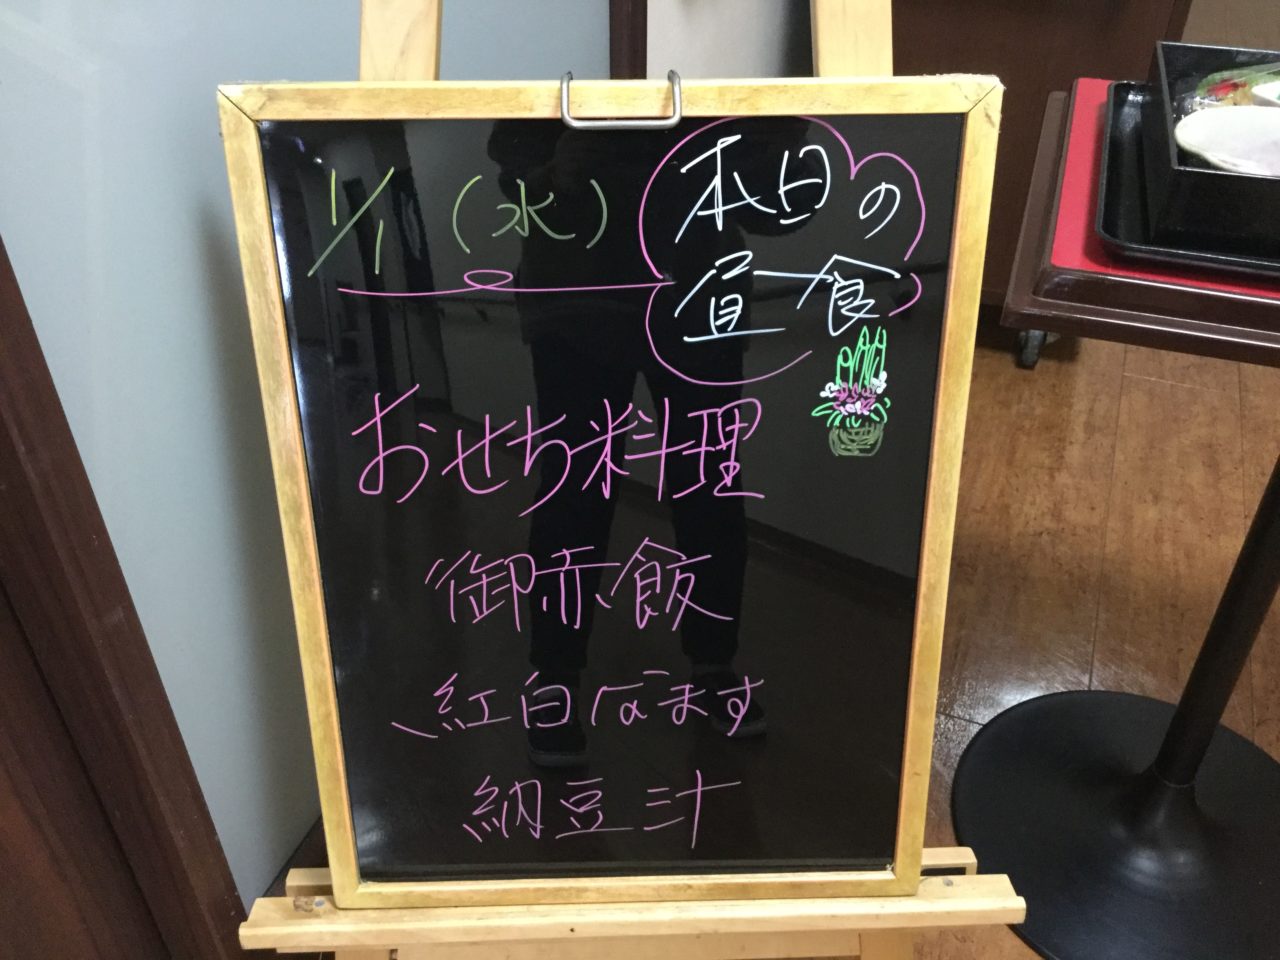 1/1(水)
本日の
昼食
おせち料理
御赤飯
紅白なます
納豆汁